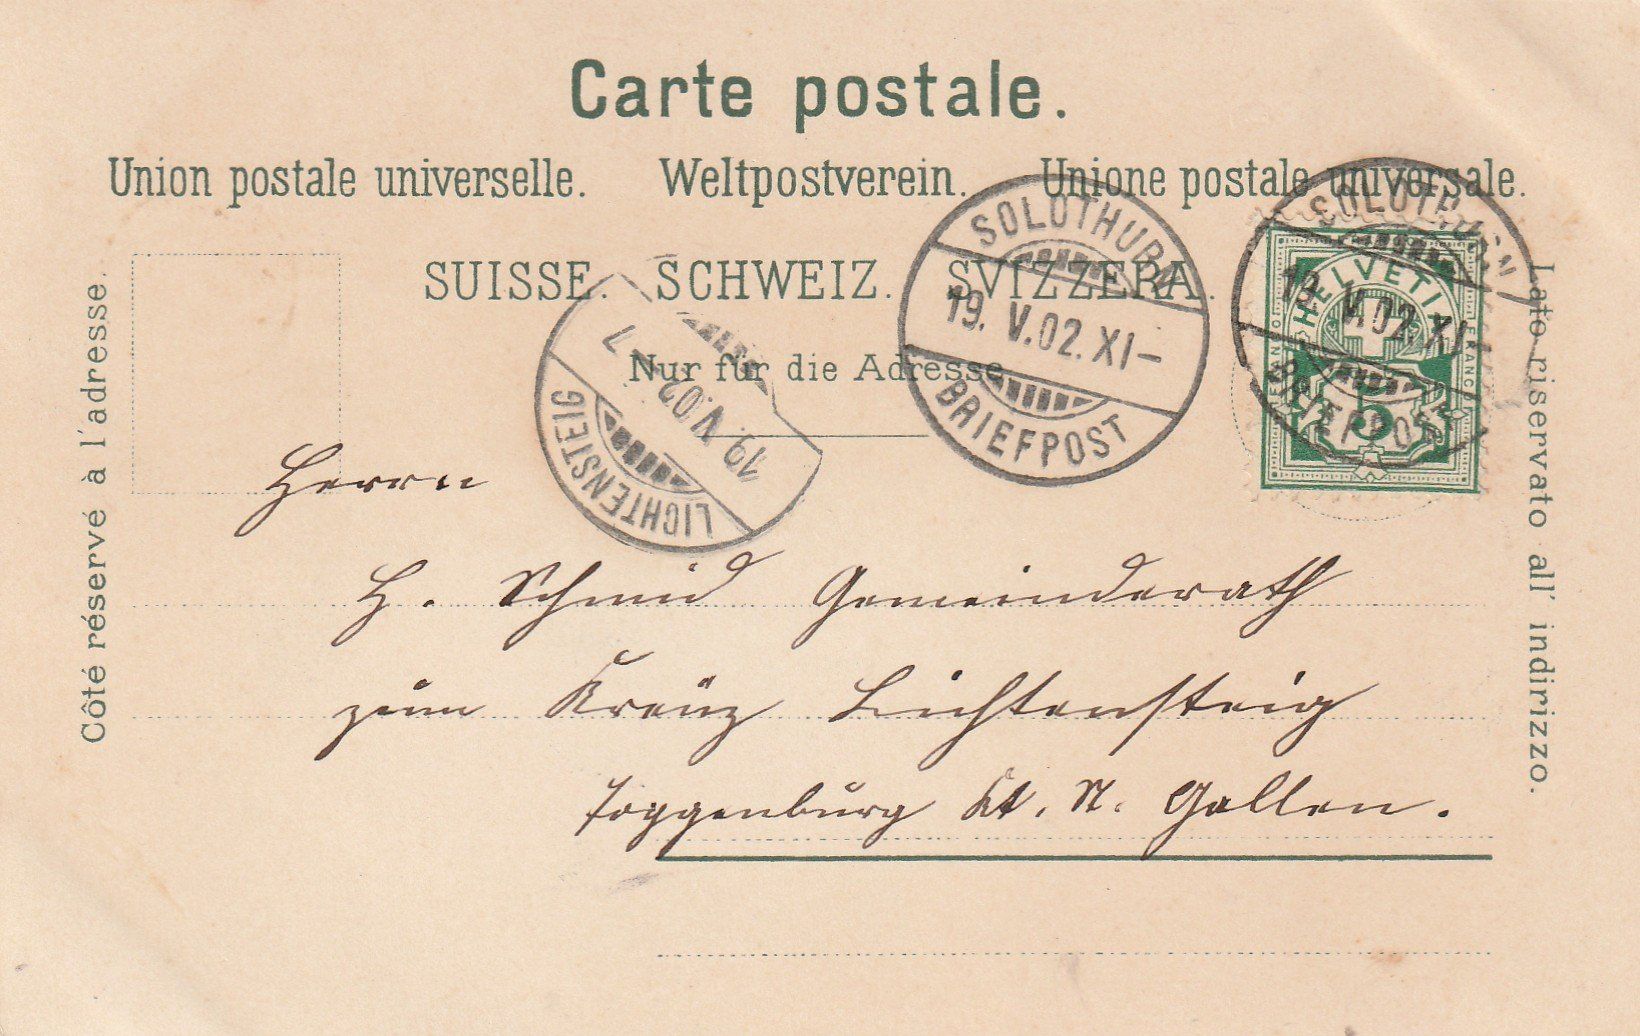 Carte postale.
Union postale universelle. Weltpostverein. Unione postale universale.
SUISSE. SCHWEIZ. SVIZZERA.
Nur für die Adresse
Côté réservé à l'adresse.
Lato riservato all' indirizzo.
SOLOTHURN
19. V.02. XI–
BRIEFPOST
SOLOTHURN
19. V.02. XI
BRIEFPOST
HELVETIA
FRANCO
5
LICHTENSTEIG
19. V.02 – 7
Herrn
H. Schmid Gemeinderath
zum Kreuz Lichtensteig
Toggenburg Kt. St. Gallen.